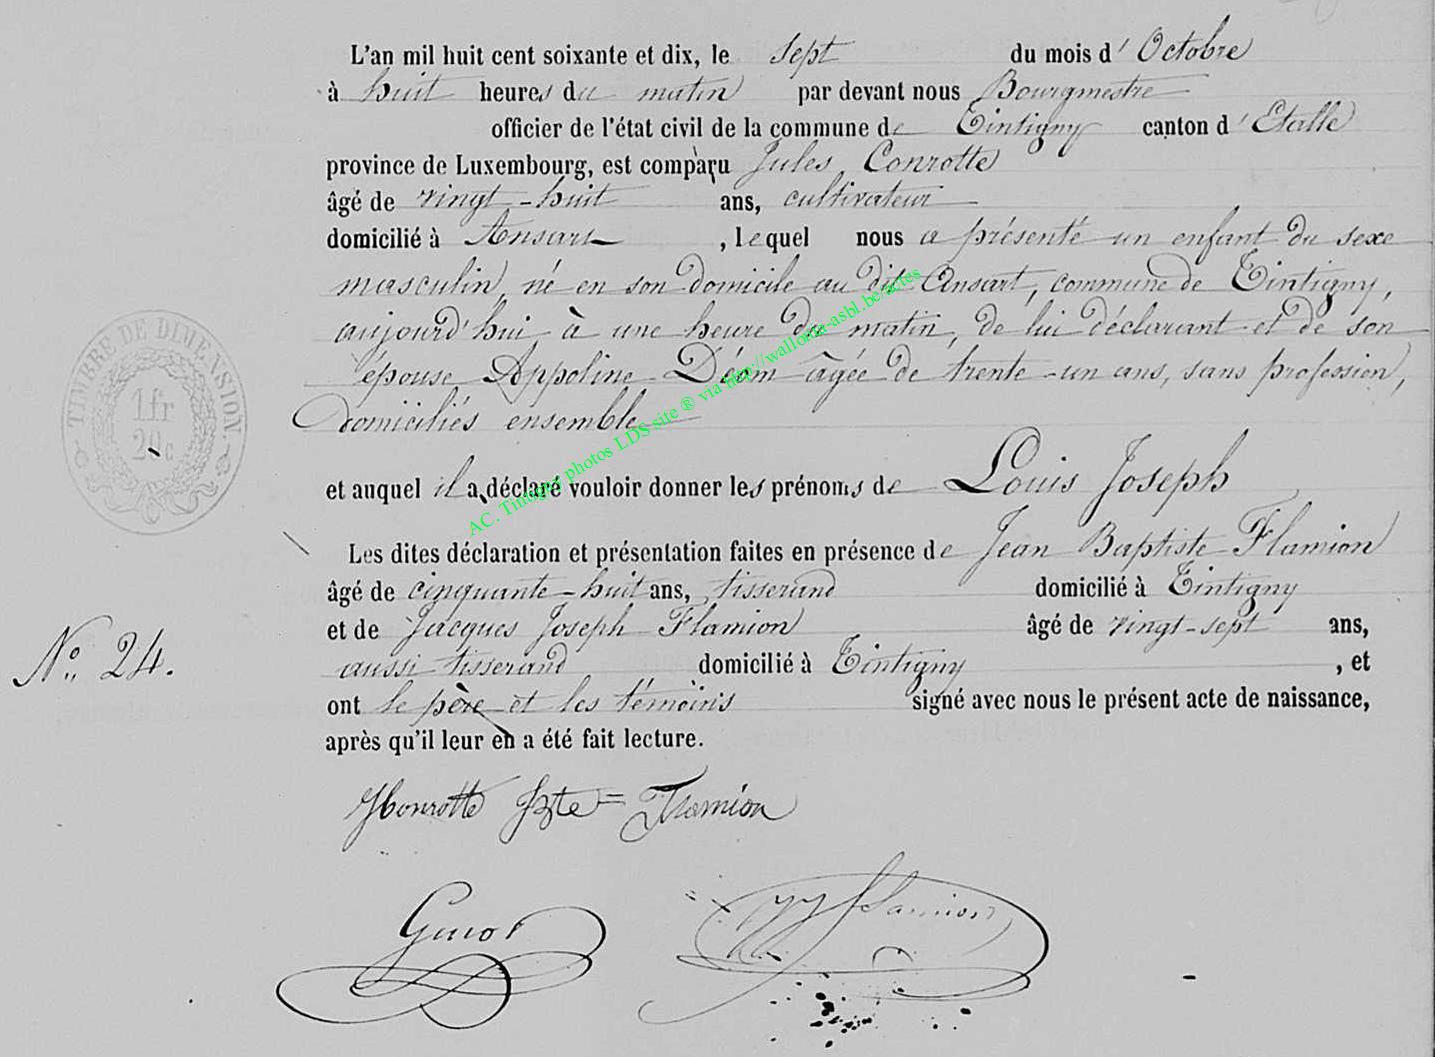 L'an mil huit cent soixante et dix, le sept du mois d'Octobre
à huit heures du matin par devant nous Bourgmestre
officier de l'état civil de la commune de Tintigny canton d'Etalle
province de Luxembourg, est comparu Jules Conrotte
âgé de vingt-huit ans, cultivateur
domicilié à Ansart, lequel nous a présenté un enfant du sexe
masculin, né en son domicile au dit Ansart, commune de Tintigny,
aujourd'hui à une heure du matin, de lui déclarant et de son
épouse, Appoline Déom âgée de trente-un ans, sans profession,
domiciliés ensemble
et auquel il a déclaré vouloir donner les prénoms de Louis Joseph
Les dites déclaration et présentation faites en présence de Jean Baptiste Flamion
âgé de cinquante-huit ans, tisserand domicilié à Tintigny
N° 24.
et de Jacques Joseph Flamion âgé de vingt-sept ans,
aussi tisserand domicilié à Tintigny, et
ont le père et les témoins signé avec nous le présent acte de naissance,
après qu'il leur en a été fait lecture.
JConrotte JBte Flamion
JJ Flamion
TIMBRE DE DIMENSION.
1 fr
20c
AC. Tintigny photos LDS site ® via http://wallonia-asbl.be/actes